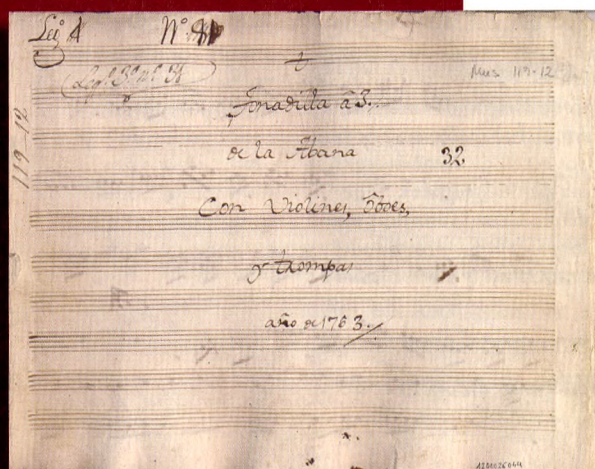 Leg.º 1 Nº
Leg.º 3.º n.º 31
Mus 119-12
119-12
Tonadilla a 3.
de la Abana
32
Con Violines, Oboes,
y trompas
año de 1763.
1200026044